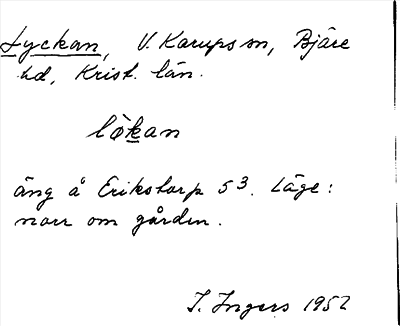 Lyckan, V. Karups sn, Bjäre
hd, Krist. län.
lökan
äng å Erikstorp 5³. Läge:
norr om gården.
I. Ingers 1952